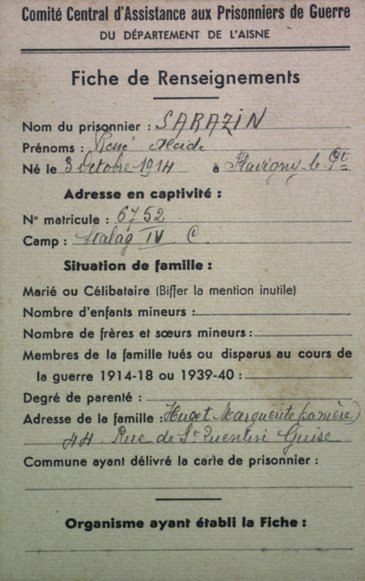 Comité Central d'Assistance aux Prisonniers de Guerre
DU DÉPARTEMENT DE L'AISNE
Fiche de Renseignements
Nom du prisonnier : SARAZIN
Prénoms : René Alcide
Né le 3 Octobre 1914 à Flavigny le Gd
Adresse en captivité :
N° matricule : 6752
Camp : Stalag IV C.
Situation de famille :
Marié ou Célibataire (Biffer la mention inutile)
Nombre d'enfants mineurs :
Nombre de frères et sœurs mineurs :
Membres de la famille tués ou disparus au cours de
la guerre 1914-18 ou 1939-40 :
Degré de parenté :
Adresse de la famille : Huget Marguerite (sa mère)
44 Rue de St Quentin Guise
Commune ayant délivré la carte de prisonnier :
Organisme ayant établi la Fiche :